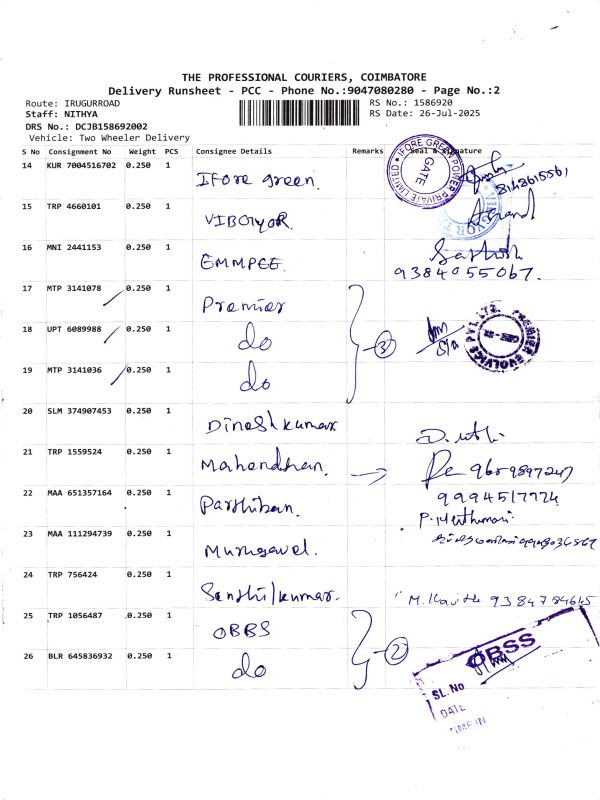 THE PROFESSIONAL COURIERS, COIMBATORE
Delivery Runsheet - PCC - Phone No.:9047080280 - Page No.:2
Route: IRUGURROAD
Staff: NITHYA
DRS No.: DCJB158692002
Vehicle: Two Wheeler Delivery
RS No.: 1586920
RS Date: 26-Jul-2025
S No Consignment No Weight PCS Consignee Details Remarks Seal & Signature
14 KUR 7004516702 0.250 1 IFore green.
IFORE GREEN POWER PRIVATE LIMITED GATE
15 TRP 4660101 0.250 1 VIBGyoR. Anand
16 MNI 2441153 0.250 1 EMMPEE. Sathish
9384055067.
17 MTP 3141078 0.250 1 Premier
18 UPT 6089988 0.250 1 do 3
PREMIER EVOLVICS PVT. LTD.
19 MTP 3141036 0.250 1 do
20 SLM 374907453 0.250 1 Dineshkumar
21 TRP 1559524 0.250 1 Mahendhan.
22 MAA 651357164 0.250 1 Parthiban.
23 MAA 111294739 0.250 1 Murugavel.
24 TRP 756424 0.250 1 Senthilkumar. M. Kavitha 9384784645
25 TRP 1056487 0.250 1 OBBS
26 BLR 645836932 0.250 1 do 2
OBSS
SL. No
DATE
TIME IN